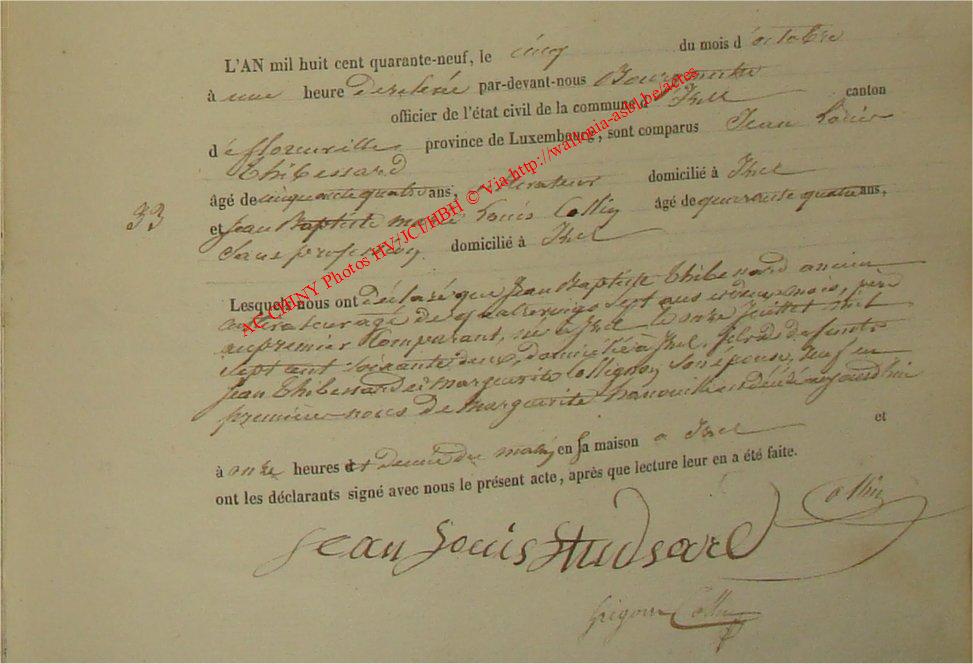 L'AN mil huit cent quarante-neuf, le cinq du mois d'octobre
à une heure de relevée par-devant-nous Bourgmestre
officier de l'état civil de la commune d'Izel canton
de florenville province de Luxembourg, sont comparus Jean Louis
Thibessard
âgé de cinquante quatre ans, domicilié à Izel
33
et Jean Baptiste Louis Collin âgé de quarante quatre ans,
Sans profession domicilié à Izel
Lesquels nous ont déclaré que Jean Baptiste Thibessard ancien
cultivateur âgé de quatre vingt sept ans et deux mois, père
au premier Comparant, né à Izel le onze juillet mil
sept cent soixante deux, domicilié à Izel, fils de défunts
Jean Thibessard et marguerite Collignon son épouse, veuf en
première noces de marguerite est décédé aujourd'hui
à onze heures et demie du matin, en sa maison a Izel et
ont les déclarants signé avec nous le présent acte, après que lecture leur en a été faite.
Collin
Jean Louis
Grégoire Collin
ACCHINY Photos HV/JCI/HBH © Via http://wallonia-asbl.be/actes